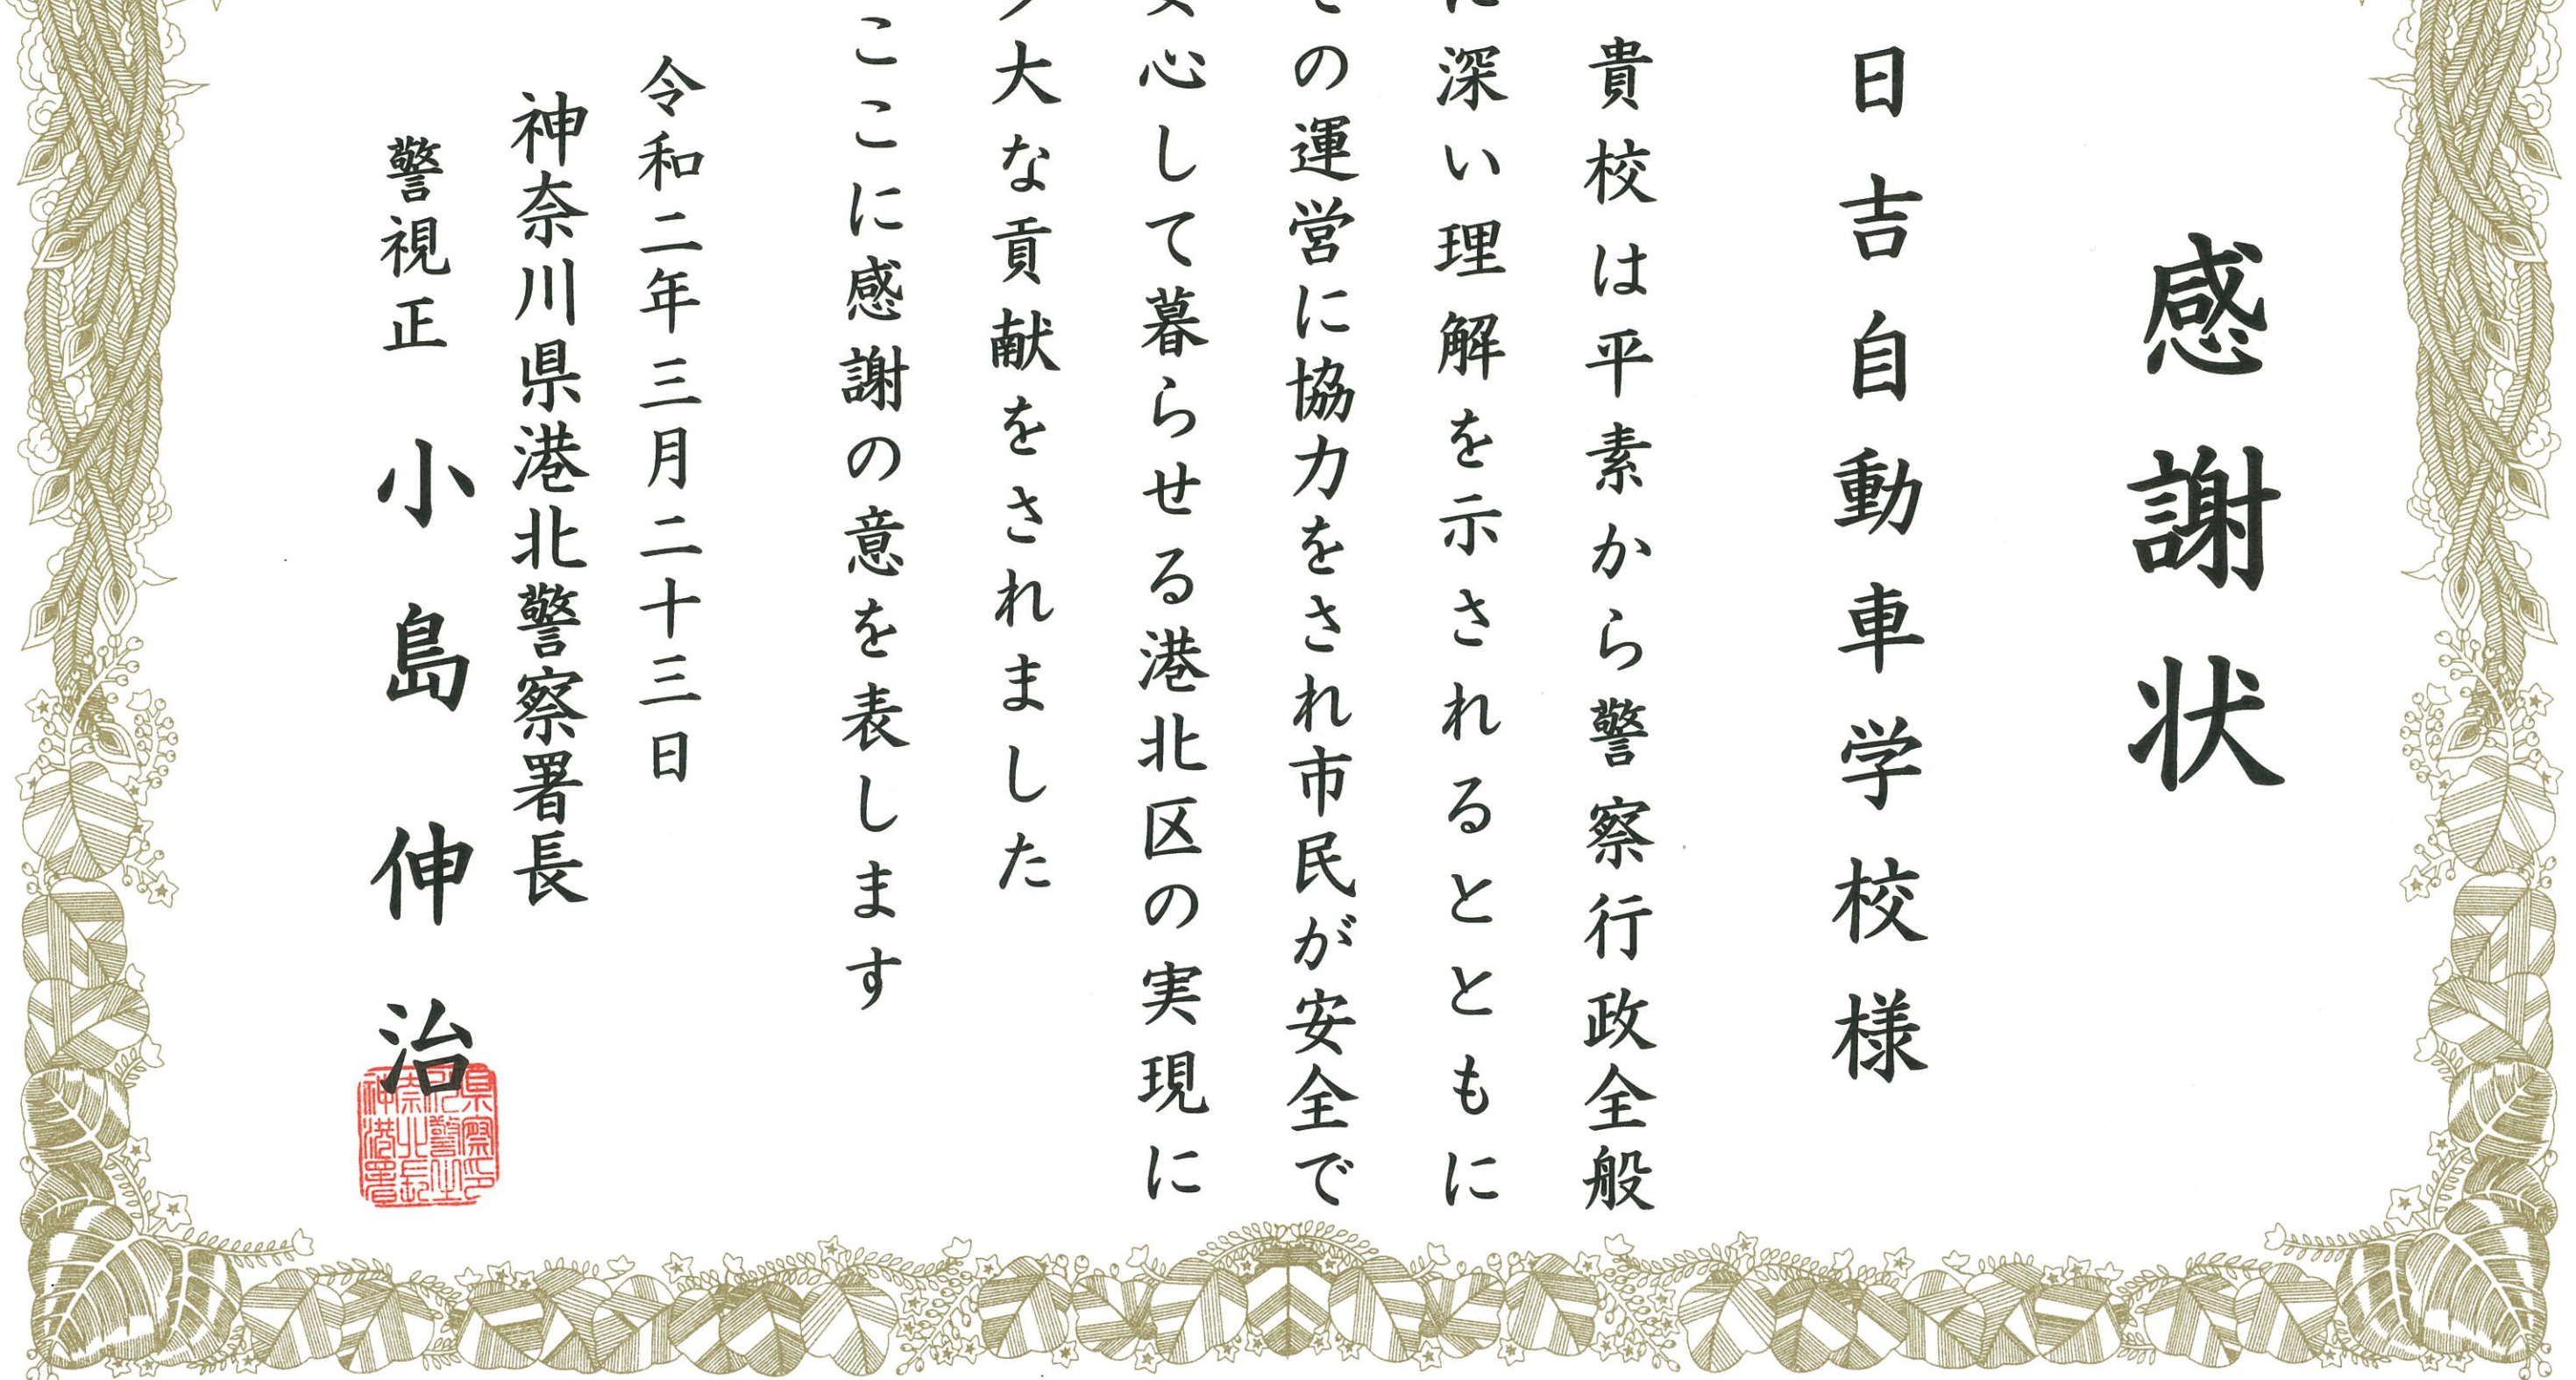 感謝状
日吉自動車学校様
貴校は平素から警察行政全般
に深い理解を示されるとともに
その運営に協力をされ市民が安全で
安心して暮らせる港北区の実現に
大な貢献をされました
ここに感謝の意を表します
令和二年三月二十三日
神奈川県港北警察署長
警視正 小島伸治